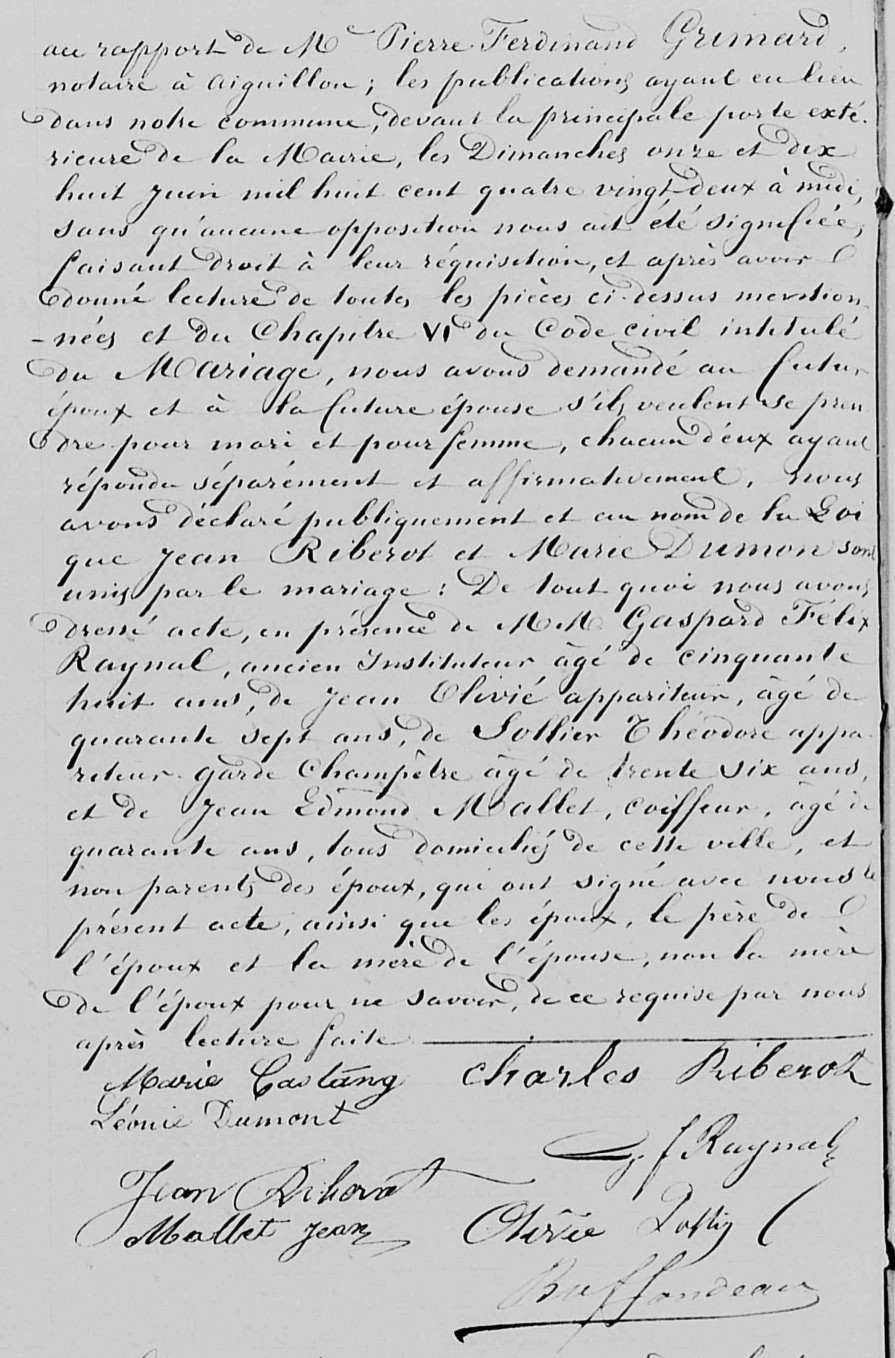 au rapport de Me Pierre Ferdinand Grimard,
notaire à Aiguillon; les publications ayant eu lieu
dans notre commune, devant la principale porte exté-
rieure de la Mairie, les Dimanches onze et dix
huit Juin mil huit cent quatre vingt deux à midi,
sans qu'aucune opposition nous ait été signifiée,
faisant droit à leur réquisition, et après avoir
donné lecture de toutes les pièces ci-dessus mention-
-nées et du Chapitre VI du Code civil intitulé
du Mariage, nous avons demandé au futur
époux et à la future épouse s'ils veulent se pren
dre pour mari et pour femme, chacun d'eux ayant
répondu séparément et affirmativement, nous
avons déclaré publiquement et au nom de la Loi
que Jean Riberot et Marie Dumon sont
unis par le mariage: De tout quoi nous avons
dressé acte, en présence de M.M. Gaspard Félix
Raynal, ancien Instituteur âgé de cinquante
huit ans, de Jean Olivié appariteur, âgé de
quarante sept ans, de Sollier Théodore appa-
riteur garde Champêtre âgé de trente six ans,
et de Jean Edmond Mallet, coiffeur, âgé de
quarante ans, tous domiciliés de cette ville, et
non parents des époux, qui ont signé avec nous le
présent acte, ainsi que les époux, le père de
l'époux et la mère de l'épouse, non la mère
de l'époux pour ne savoir, de ce requise par nous
après lecture faite
Marie Castang Charles Riberot
Léonie Dumont
G. f Raynal
Jean Riberot
Mallet Jean Olivié
Buffandeau